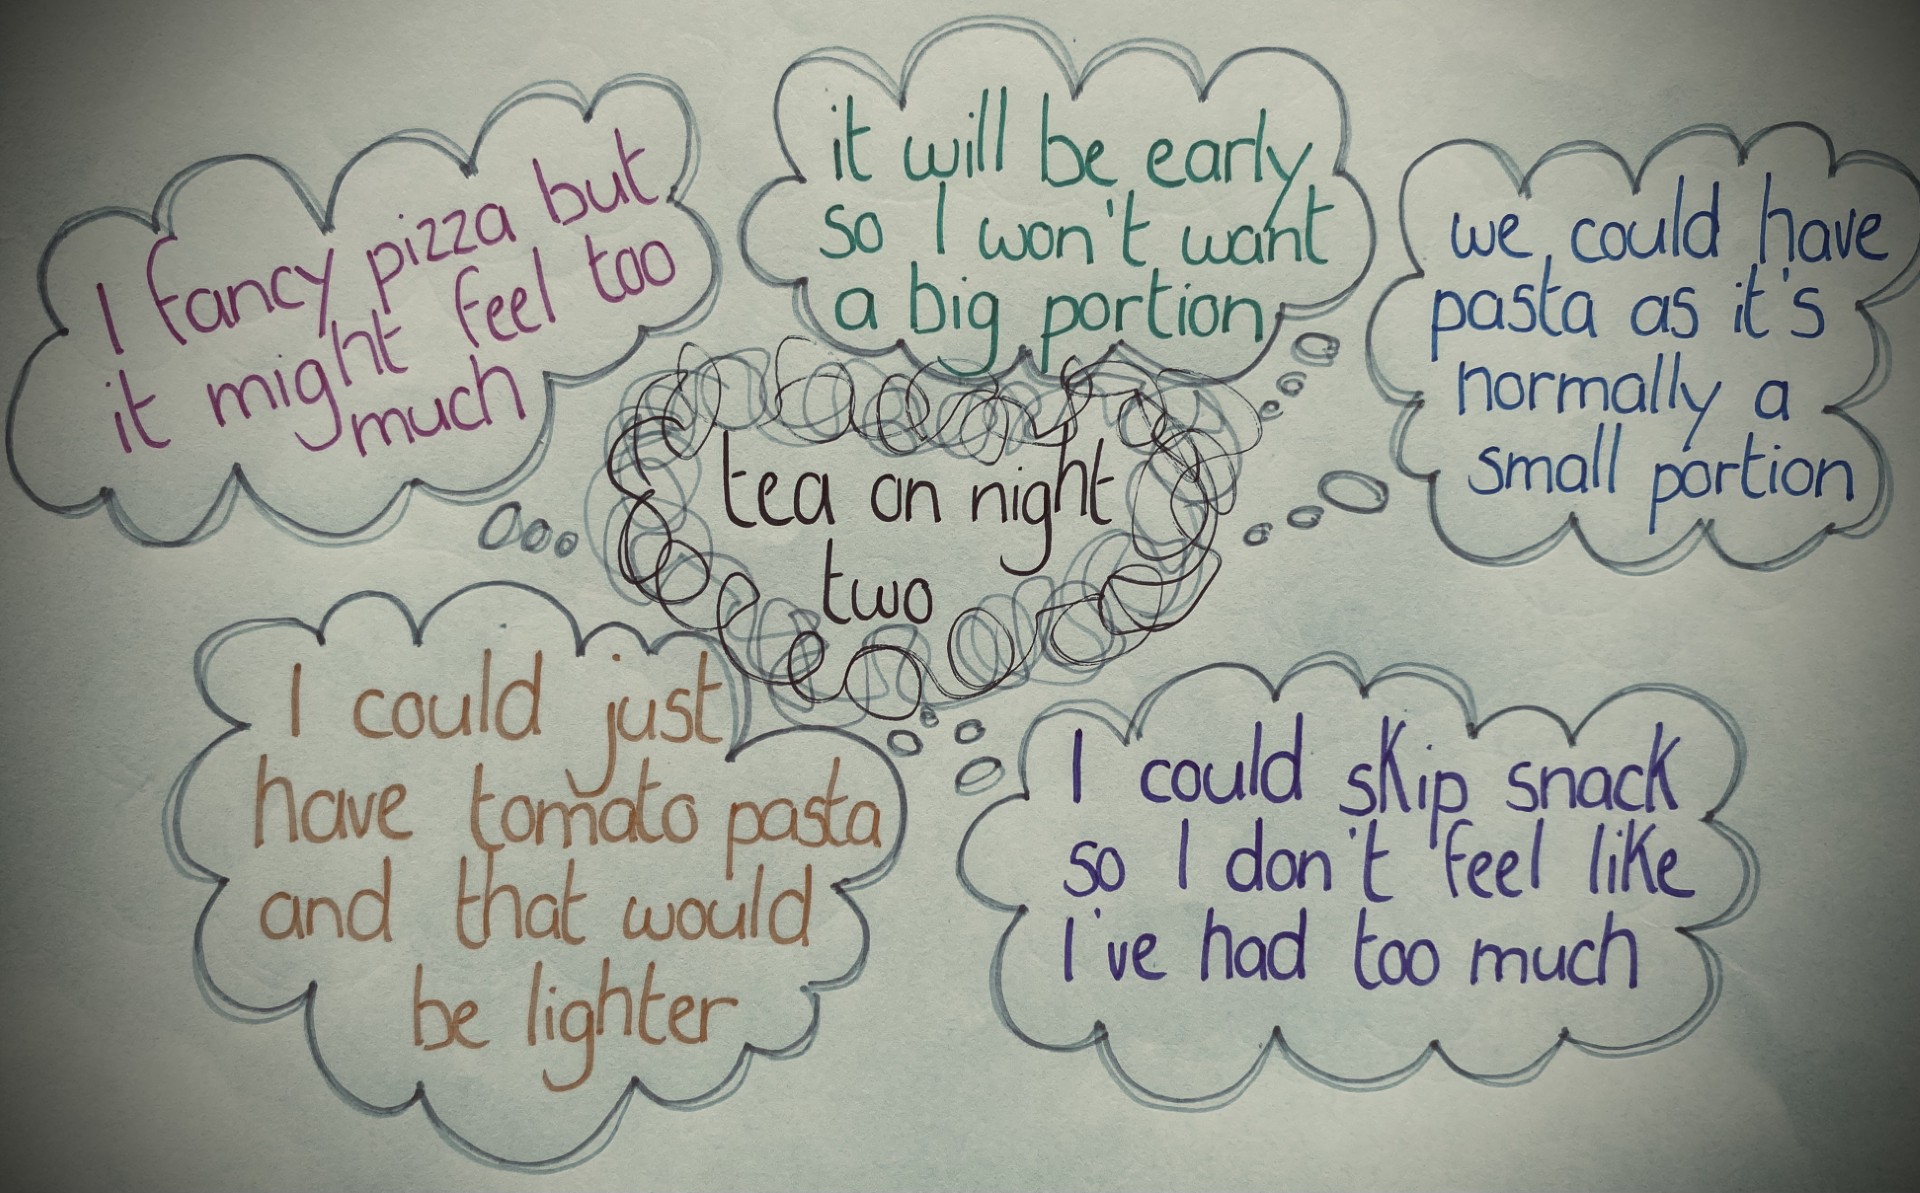 I fancy pizza but
it might feel too
much
it will be early
so I won't want
a big portion
we could have
pasta as it's
normally a
small portion
tea on night
two
I could just
have tomato pasta
and that would
be lighter
I could skip snack
so I don't feel like
I've had too much